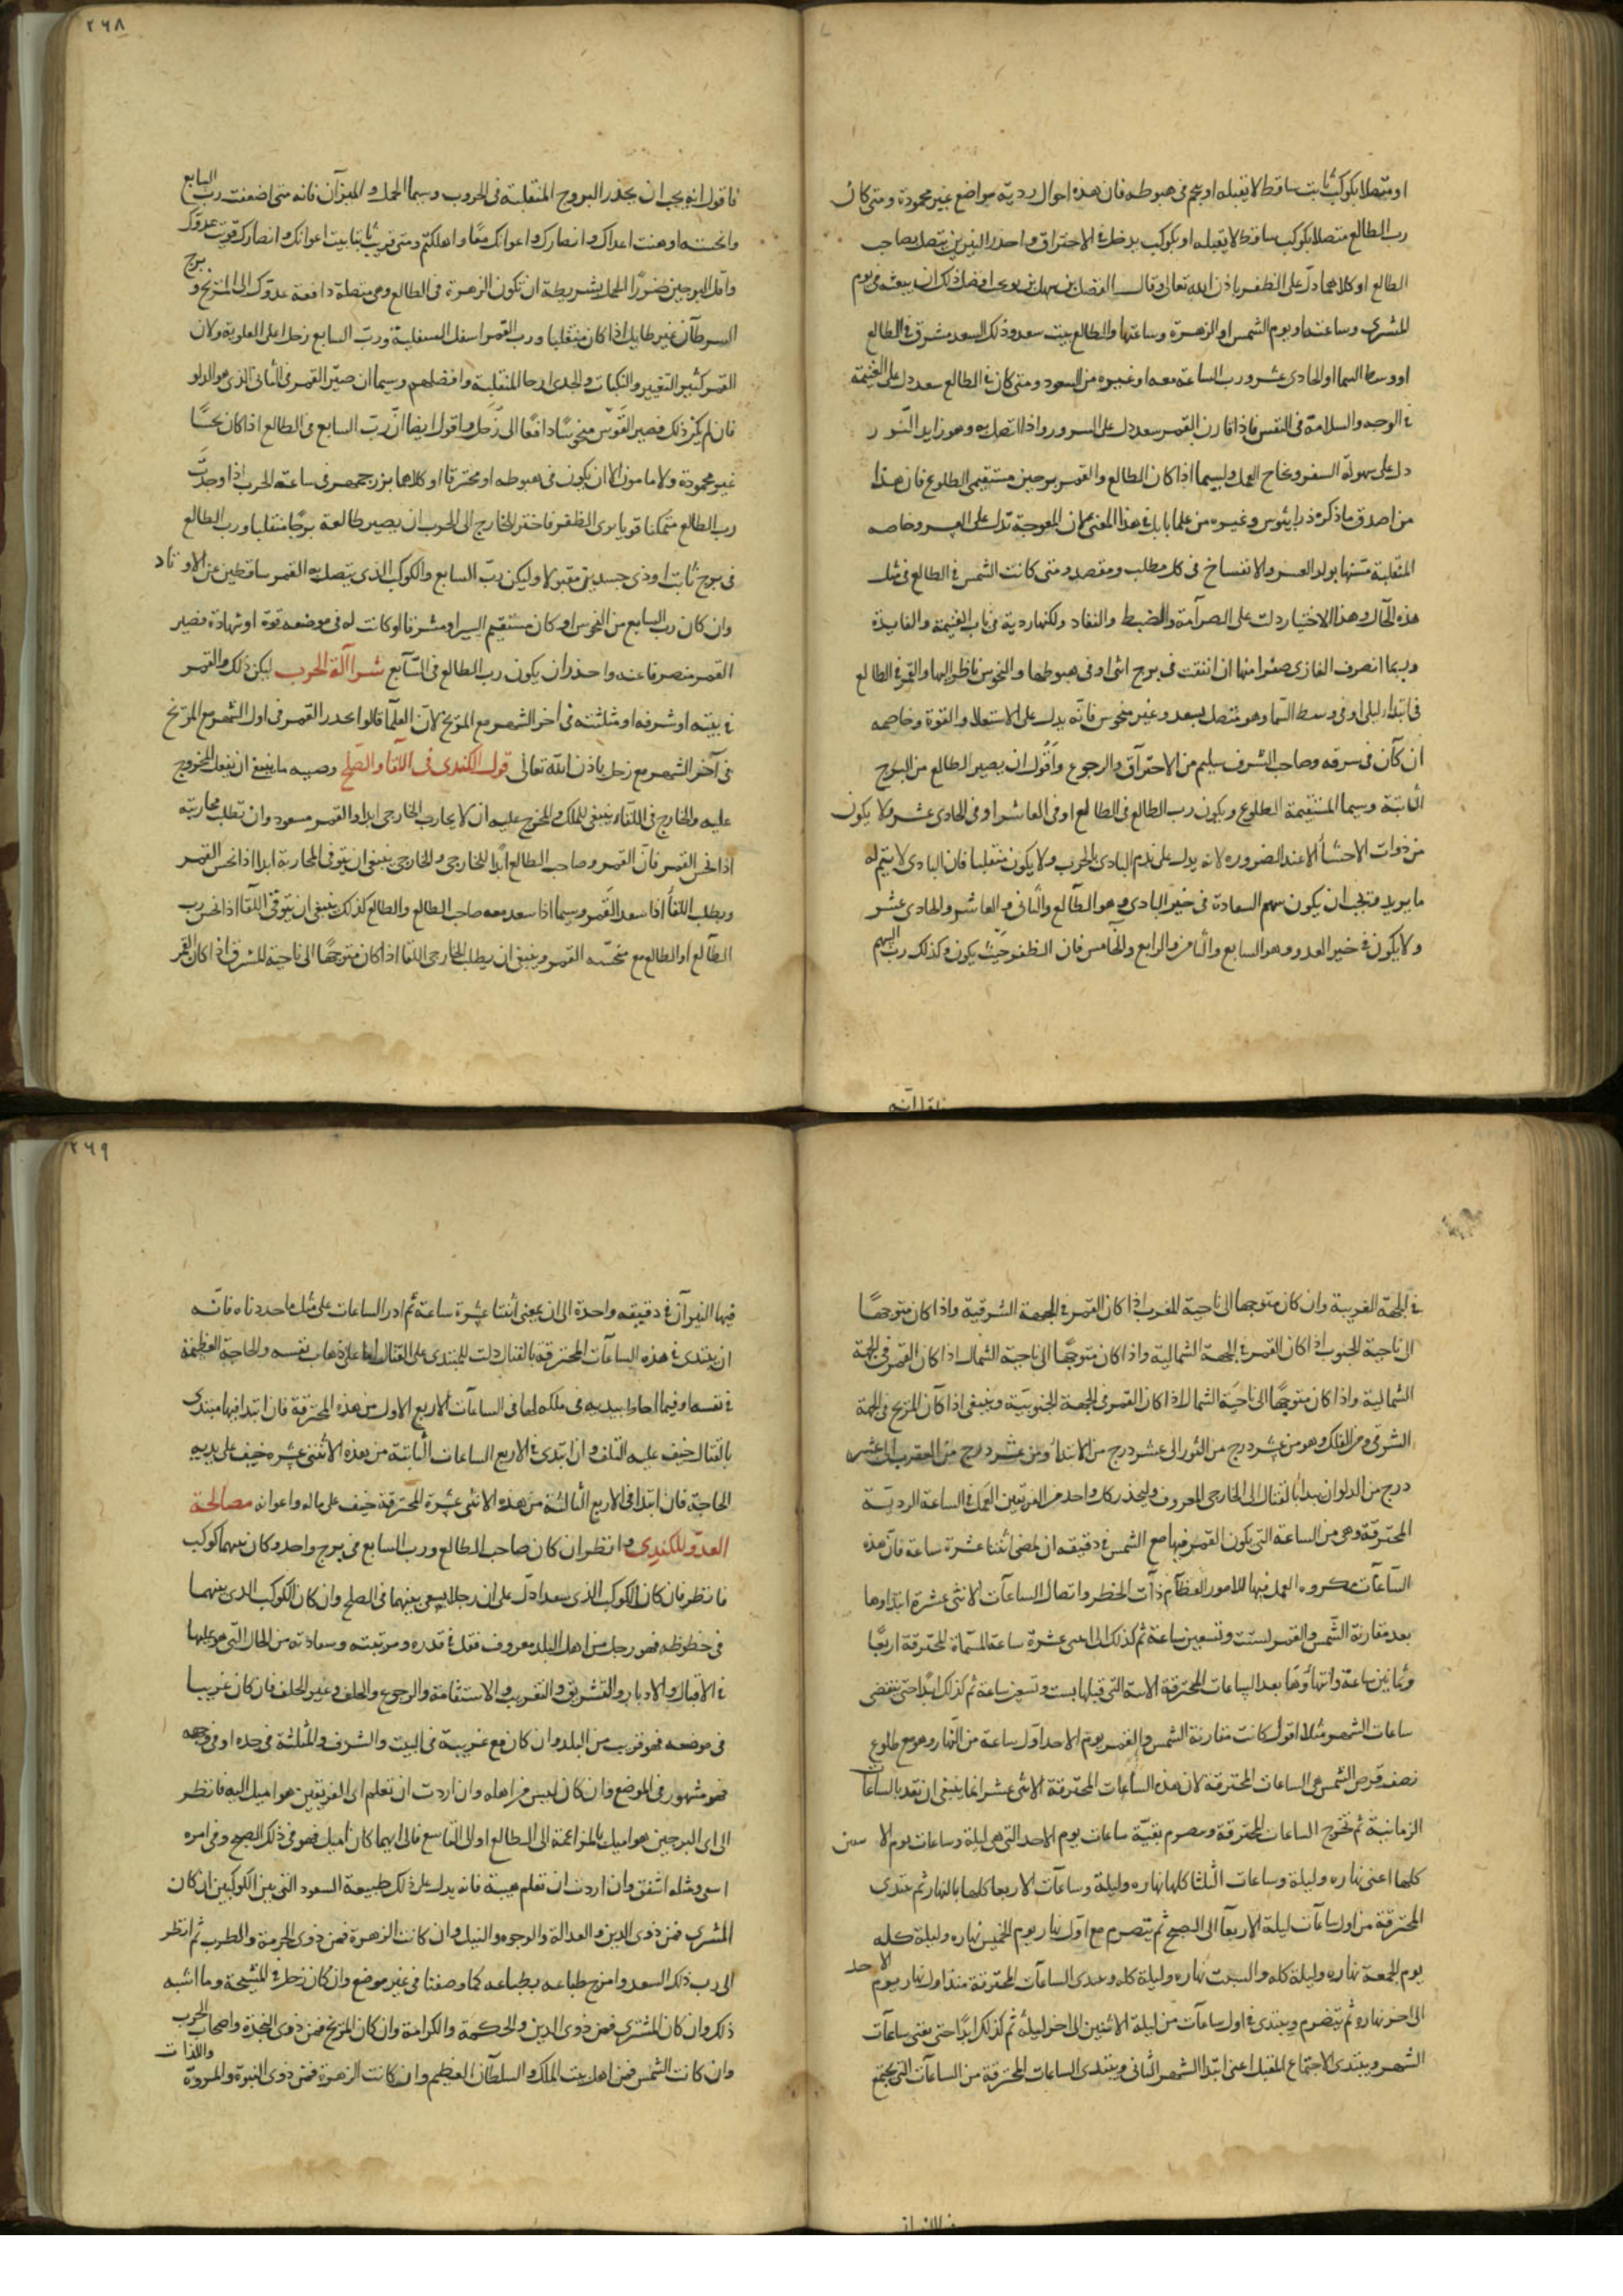 او متصلا بكوكب ثابت ساقط لا يقبله او نجم فى هبوطه فان هذه احوال ردية مواضع غير محمودة ومتى كان
رب الطالع متصلا بكوكب ساقط لا يقبله او بكوكب يدخل فى الاحتراق واحذر النيرين يتصل بصاحب
الطالع او كلاهما دل على الظفر باذن الله تعالى وقال الفضل بن سهل بن افضل ذلك ان يبعثه فى يوم
المشترى وساعته او يوم الشمس او الزهرة وساعتها والطالع بيت سعد وذلك السعد مشرق فى الطالع
او وسط السما او الحادى عشر ورب الساعة معه او غيره من السعود ومتى كان فى الطالع سعد دل على الغنيمة
فى الوجه والسلامة فى النفس فاذا قارن القمر سعد دل على السرور واذا اتصل به وهو زايد النور
دل على سهولة السفر ونجاح العمل وليسيما اذا كان الطالع والقمر برجين مستقيمى الطلوع فان هذا
من اصدق ما ذكره ذرايثوس وغيره من علما بابل فى هذا المعنى لان المعوجة تدل على العسر وخاصه
المنقلبة منها يولد العسر والانفساخ فى كل مطلب ومقصد ومتى كانت الشمس فى الطالع فى مثل
هذه الحال وهذا الاختيار دلت على الصرامة والضبط والنفاد ولكنها ردية فى باب الغنيمة والفايدة
وربما انصرف الغازى صفرا منها ان اتفقت فى برج انثى او فى هبوطها والنحوس ناظر اليها والقمر فى الطالع
فى ابتداء ليلى او فى وسط السما وهو متصل بسعد وغير منحوس فانه يدل على الاستعلاء والقوة وخاصه
ان كان فى شرفه وصاحب الشرف سليم من الاحتراق والرجوع واقول ان يصير الطالع من البروج
الثابتة وسيما المستقيمة الطلوع ويكون رب الطالع فى الطالع او فى العاشر او فى الحادى عشر ولا يكون
من ذوات الاجساد الا عند الضروره لانه يدل على ندم البادى بالحرب ولا يكون منقلبا فان البادى لا يتم له
ما يريد ويجب ان يكون سهم السعادة فى خير البادى وهو الطالع والثانى والعاشر والحادى عشر
ولا يكون فى خير العدو وهو السابع والثامن والرابع والخامس فان الظفر حيث يكون وكذلك رب السهم
٢٦٨
فاقول انه يجب ان يحذر البروج المنقلبة فى الحروب وسيما الحمل والميزان فانه متى اضعفت رب السابع
وانحسته اوهنت اعداك وانصارك واعوانك معا واهلكتهم ومتى قويت ثابتا بيت اعوانك وانصارك قويت عدوك
واقل البرجين ضررا الحمل بشريطة ان تكون الزهرة فى الطالع وهى متصلة دافعة عدوك الى المريخ و برج
السرطان غير طايل اذا كان منقلبا ورب القمر اسفل السفلية ورب السابع زحل اعلى العلوية ولان
القمر كثير التغيير والنكبات والجدى ارجا المنقلبة وافضلهم وسيما ان صير القمر فى الثانى الذى هو الدلو
فان لم يكن ذلك فصير القوس منحوسا دافعا الى زحل واقول ايضا ان رب السابع فى الطالع اذا كان نحسا
غير محمودة ولا مامون الا ان يكون فى هبوطه او محترقا او كلاهما بزرجمهر فى ساعة الحرب اذا وجدت
رب الطالع متمكنا قويا يرى الظفر فاختر للخارج الى الحرب ان يصير طالعه برجا منقلبا ورب الطالع
فى برج ثابت او ذى جسدين مقبولا وليكن رب السابع والكوكب الذى يتصل به القمر ساقطين عن الاوتاد
وان كان رب السابع من النحوس او كان مستقيم السير او مشرقا لو كانت له فى موضعه قوة او شهادة فصير
القمر منصرفا عنه واحذر ان يكون رب الطالع فى السابع شرا آلة الحرب ليكن ذلك والقمر
فى بيته او شرفه او مثلثته فى آخر الشهر مع المريخ لان العلما قالوا يحذر القمر فى اول الشهر مع المريخ
فى آخر الشهر مع زحل باذن الله تعالى قول الكندى فى اللقا والصلح وصيه ما ينبغى ان يفعل المخروج
عليه والخارج فى اللقاء ينبغى للملك والمخروج عليه ان لا يحارب الخارجى ابدا والقمر مسعود وان تطلب محاربته
اذا نحس القمر فان القمر وصاحب الطالع ابدا للخارجى والخارجى ينبغى ان يتوقى المحاربة ابدا اذا نحس القمر
ويطلب اللقا اذا سعد القمر وسيما اذا سعد معه صاحب الطالع والطالع كذلك ينبغى ان يتوقى اللقا اذا نحس رب
الطالع او الطالع مع منحسه القمر وينبغى ان يطلب الخارجى اللقا اذا كان متوجها الى ناحية المشرق اذا كان القمر
فى الجهة الغربية وان كان متوجها الى ناحية المغرب اذا كان القمر فى الجهة الشرقية واذا كان متوجها
الى ناحية الجنوب اذا كان القمر فى الجهة الشمالية واذا كان متوجها الى ناحية الشمال اذا كان القمر فى الجهة
الشمالية واذا كان متوجها الى ناحية الشمال اذا كان القمر فى الجهة الجنوبية وينبغى اذا كان المريخ فى الجهة
الشرقى من الفلك وهو من عشر درج من الثور الى عشر درج من الاسد ومن عشر درج من العقرب الى عشر
درج من الدلو ان يبدأ بالقتال الى الخارجى المعروف وليحذر كل واحد من الفريقين العمل فى الساعة الردية
المحترقة وهى من الساعة التى يكون القمر فيها مع الشمس فى دقيقه ان يمضى اثنتا عشرة ساعة فان هذه
الساعات مكروه العمل فيها للامور العظام ذات الخطر واتصال الساعات الاثنى عشرة ابتداوها
بعد مقارنة الشمس والقمر لست وتسعين ساعة ثم كذلك الى اثنى عشرة ساعة المسماة المحترقة اربعا
وثمانين ساعة وانتهاؤها بعد الساعات المحترقة التى قبلها بست وتسعين ساعة ثم كذلك ابدا حتى تنقضى
ساعات الشهر مثلا اقول كانت مقارنة الشمس والقمر يوم الاحد اول ساعة من النهار وهو مع طلوع
نصف قرص الشمس هى الساعات المحترقة لان هذه الساعات المحترقة الاثنى عشر انما ينبغى ان تقد بالساعات
الزمانية ثم تخرج الساعات المحترقة ويصوم بقية ساعات يوم الاحد التى هى ليلة وساعات يوم الاثنين
كلها اعنى نهاره وليلة وساعات الثلثا كلها نهاره وليلة وساعات الاربعا كلها بالنهار ثم يبتدى
المحترقة من اول ساعات ليلة الاربعا الى الصبح ثم يتصرم مع اول نهار يوم الخميس نهاره وليلة كله
يوم الجمعة نهاره وليلة كله والسبت نهاره وليلة كله ويبتدى الساعات المحترقة منذ اول نهار يوم الاحد
الى اخر نهاره ثم يتصرم ويبتدى فى اول ساعات من ليلة الاثنين الى اخر ليلة ثم كذلك ابدا حتى يفنى ساعات
الشهر ويبتدى الاجتماع المقبل اعنى ابتدا الشهر الثانى ويبتدى الساعات المحترقة من الساعات التى يجتمع
٢٦٩
فيها النيران فى دقيقه واحدة الى ان يمضى اثنتا عشرة ساعة ثم ادر الساعات على مثل ما حددناه فانه
ان يبتدى فى هذه الساعات المحترقة بالقتال دلت للمبتدى على القتال على ذهاب نفسه والحاجة العظيمة
فى نفسه او فيما احاط بيديه فى ملكه اما فى الساعات الاربع الاول من هذه المحترقة فان ابتدا فيها مبتدى
بالقتال خيف عليه التلف وان ابتدى فى الاربع الساعات الثانية من هذه الاثنى عشره خيف على يديه
الحاجة فان ابتدا فى الاربع الثالثة من هذه الاثنى عشرة المحترقة خيف على ماله واعوانه مصالحة
العدو للكندى وانظر ان كان صاحب الطالع ورب السابع فى برج واحد وكان بينهما كوكب
فانظر فان كان الكوكب الذى سعدا دل على ان رجلا يسعى بينهما فى الصلح وان كان الكوكب الذى بينهما
فى حظوظه فهو رجل من اهل البلد معروف فقل فى قدره ومرتبته وسعادته من الحال التى هو عليها
فى الاقبال والادبار والتشريق والتغريب والاستقامة والرجوع والحلف وغير الحلف فان كان غريبا
فى موضعه فهو قريب من البلد وان كان مع غريبة فى البيت والشرف والمثلثة فى حده او فى وجهه
فهو مشهور فى الموضع وان كان ليس من اهله وان اردت ان تعلم اى الفريقين هو اميل اليه فانظر
الى اى البرجين هو اميل بالمزاعمة الى الطالع او الى السابع فالى ايهما كان اميل فهو فى ذلك اصح وفى امره
اسعى ومثله اشفق وان اردت ان تعلم هيبة فانه يدل على ذلك طبيعة السعود التى بين الكوكبين ان كان
المشترى فمن ذوى الدين والعدالة والوجوه والنبل وان كانت الزهرة فمن ذوى الحرمة والطرب ثم انظر
الى رب ذلك السعد وامزج طباعه بطباعه كما وصفنا فى غير موضع وان كان زحل فى المشيخة وما اشبه
ذلك وان كان المشترى فمن ذوى الدين والحكمة والكرامة وان كان المريخ فمن ذوى النجدة واصحاب الحرب
وان كانت الشمس فمن اهل بيت الملك والسلطان العظيم وان كانت الزهرة فمن ذوى النبوة والمروة واللذات